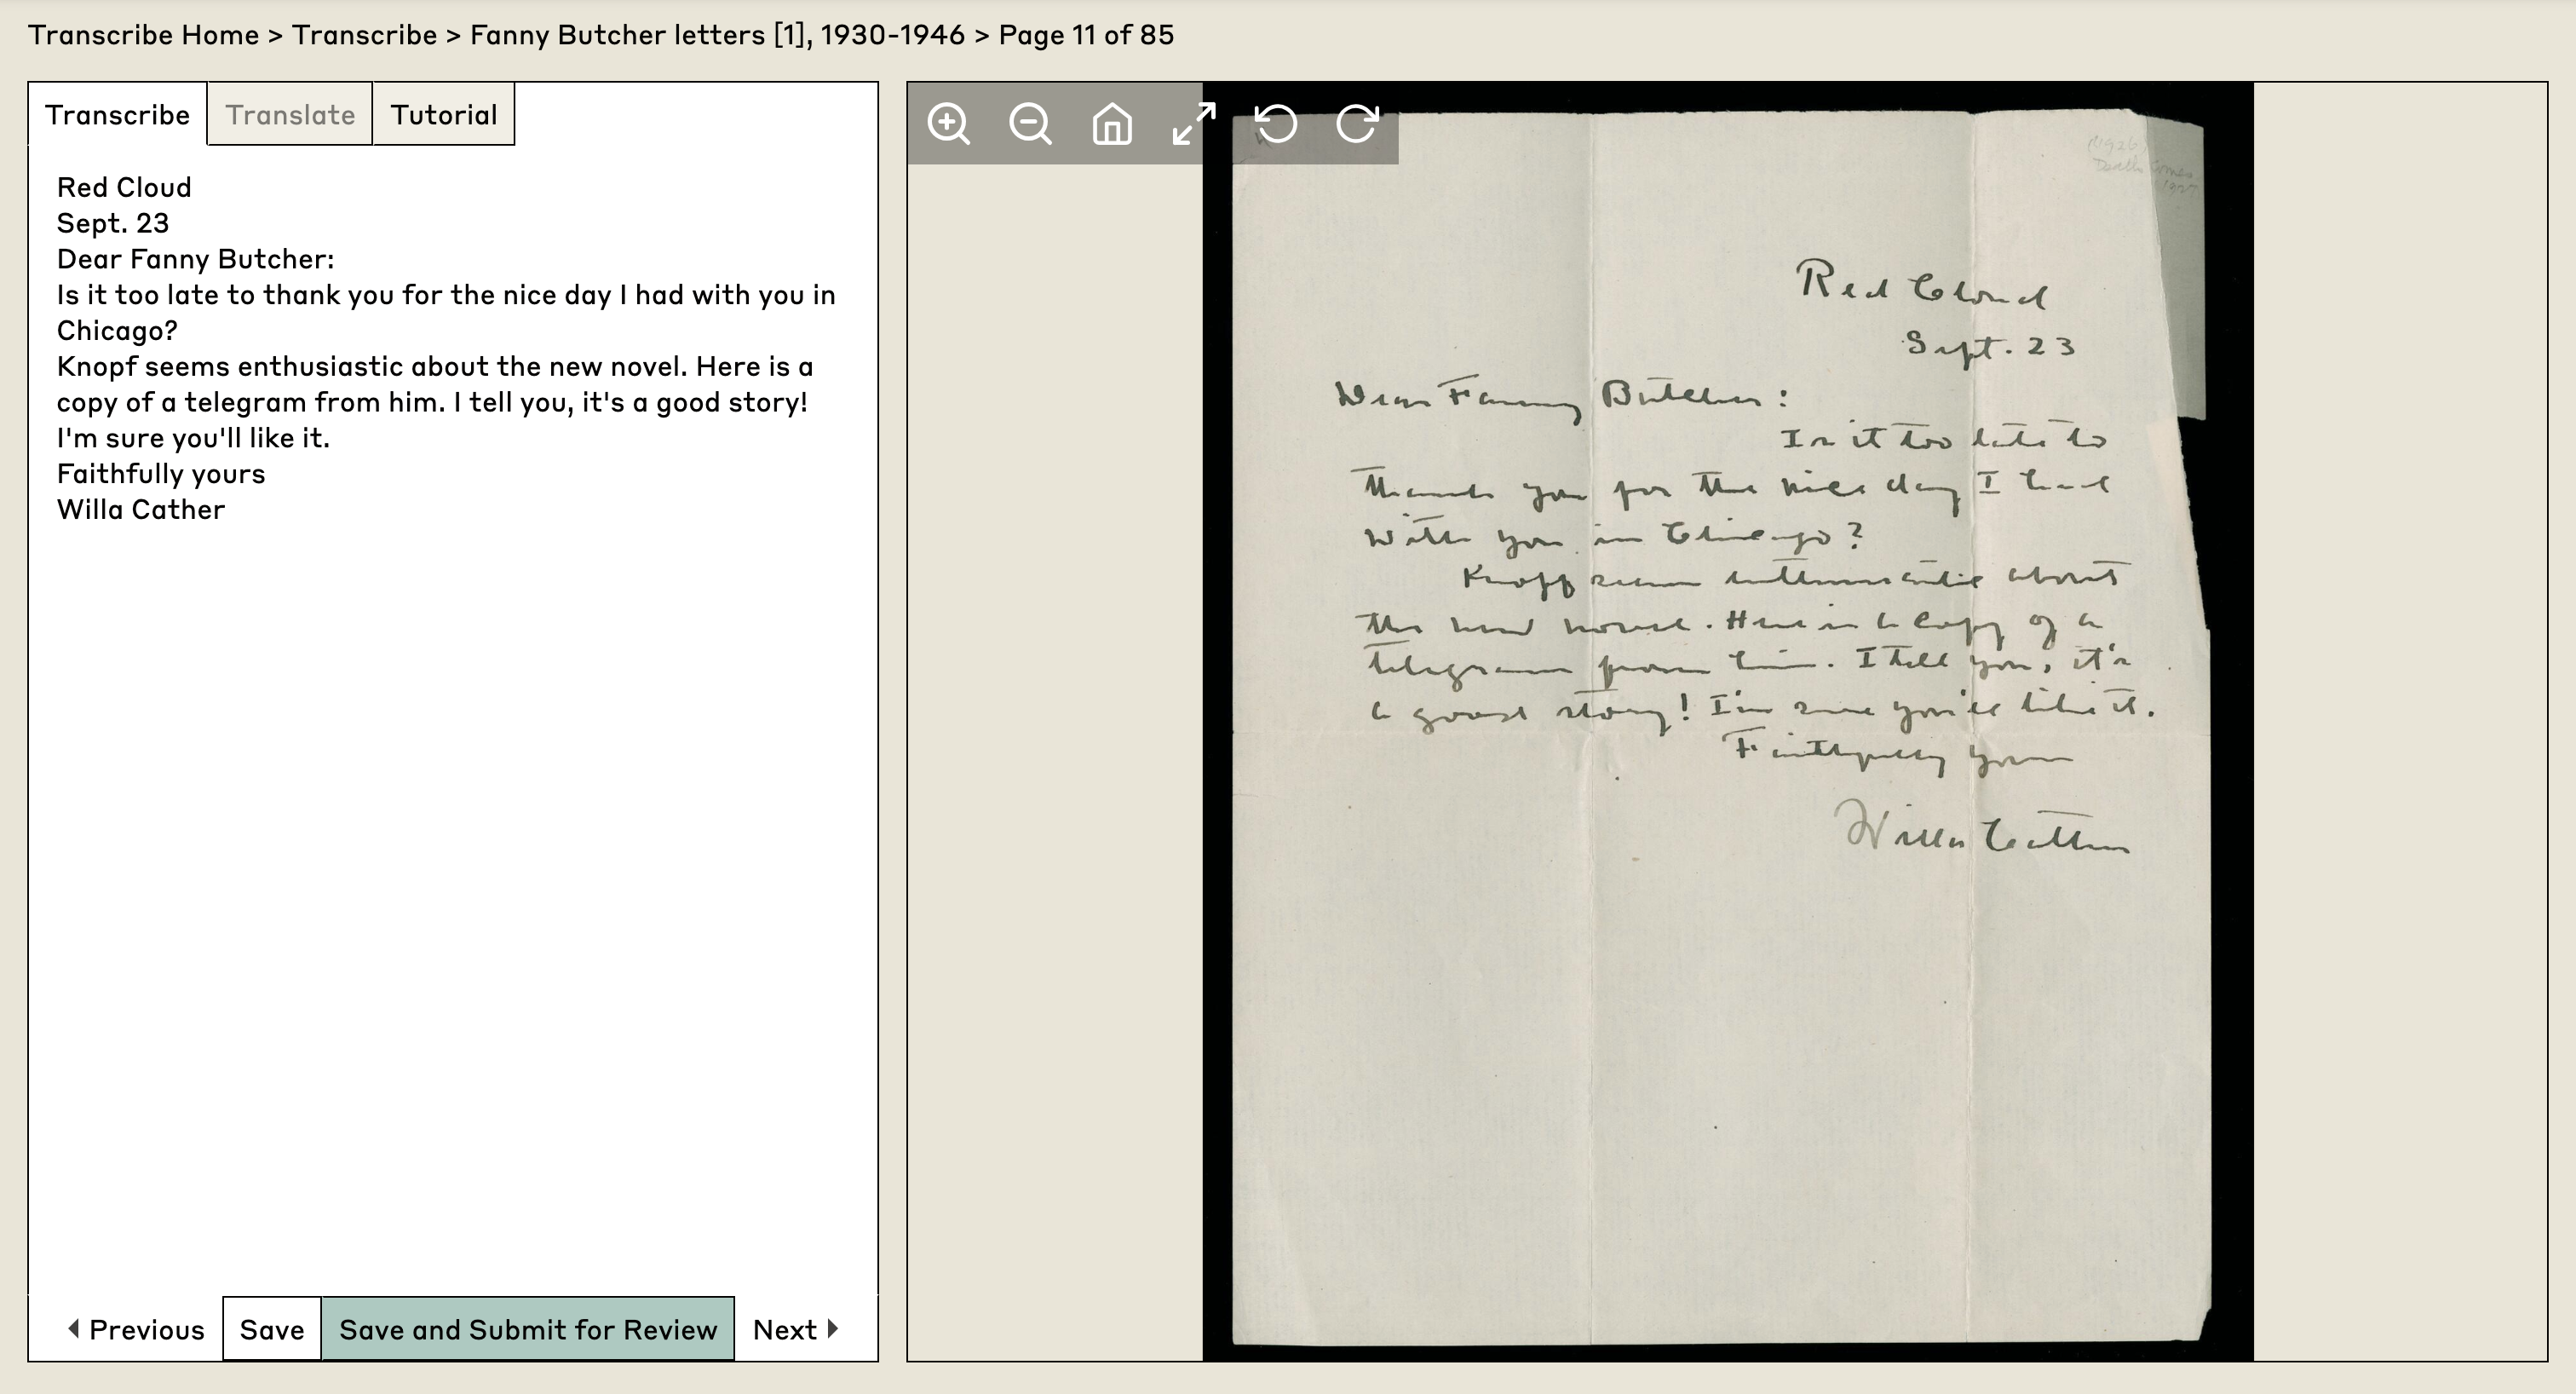 Transcribe Home > Transcribe > Fanny Butcher letters [1], 1930-1946 > Page 11 of 85
Transcribe
Translate
Tutorial
Red Cloud
Sept. 23
Dear Fanny Butcher:
Is it too late to thank you for the nice day I had with you in
Chicago?
Knopf seems enthusiastic about the new novel. Here is a
copy of a telegram from him. I tell you, it's a good story!
I'm sure you'll like it.
Faithfully yours
Willa Cather
Previous
Save
Save and Submit for Review
Next
(1926)
Death Comes
1927
Red Cloud
Sept. 23
Dear Fanny Butcher:
Is it too late to
thank you for the nice day I had
with you in Chicago?
Knopf seems enthusiastic about
the new novel. Here is a copy of a
telegram from him. I tell you, it's
a good story! I'm sure you'll like it.
Faithfully yours
Willa Cather